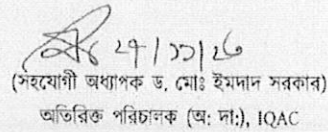 ২৭/১১/২৫
(সহযোগী অধ্যাপক ড. মোঃ ইমদাদ সরকার)
অতিরিক্ত পরিচালক (অ: দা:), IQAC